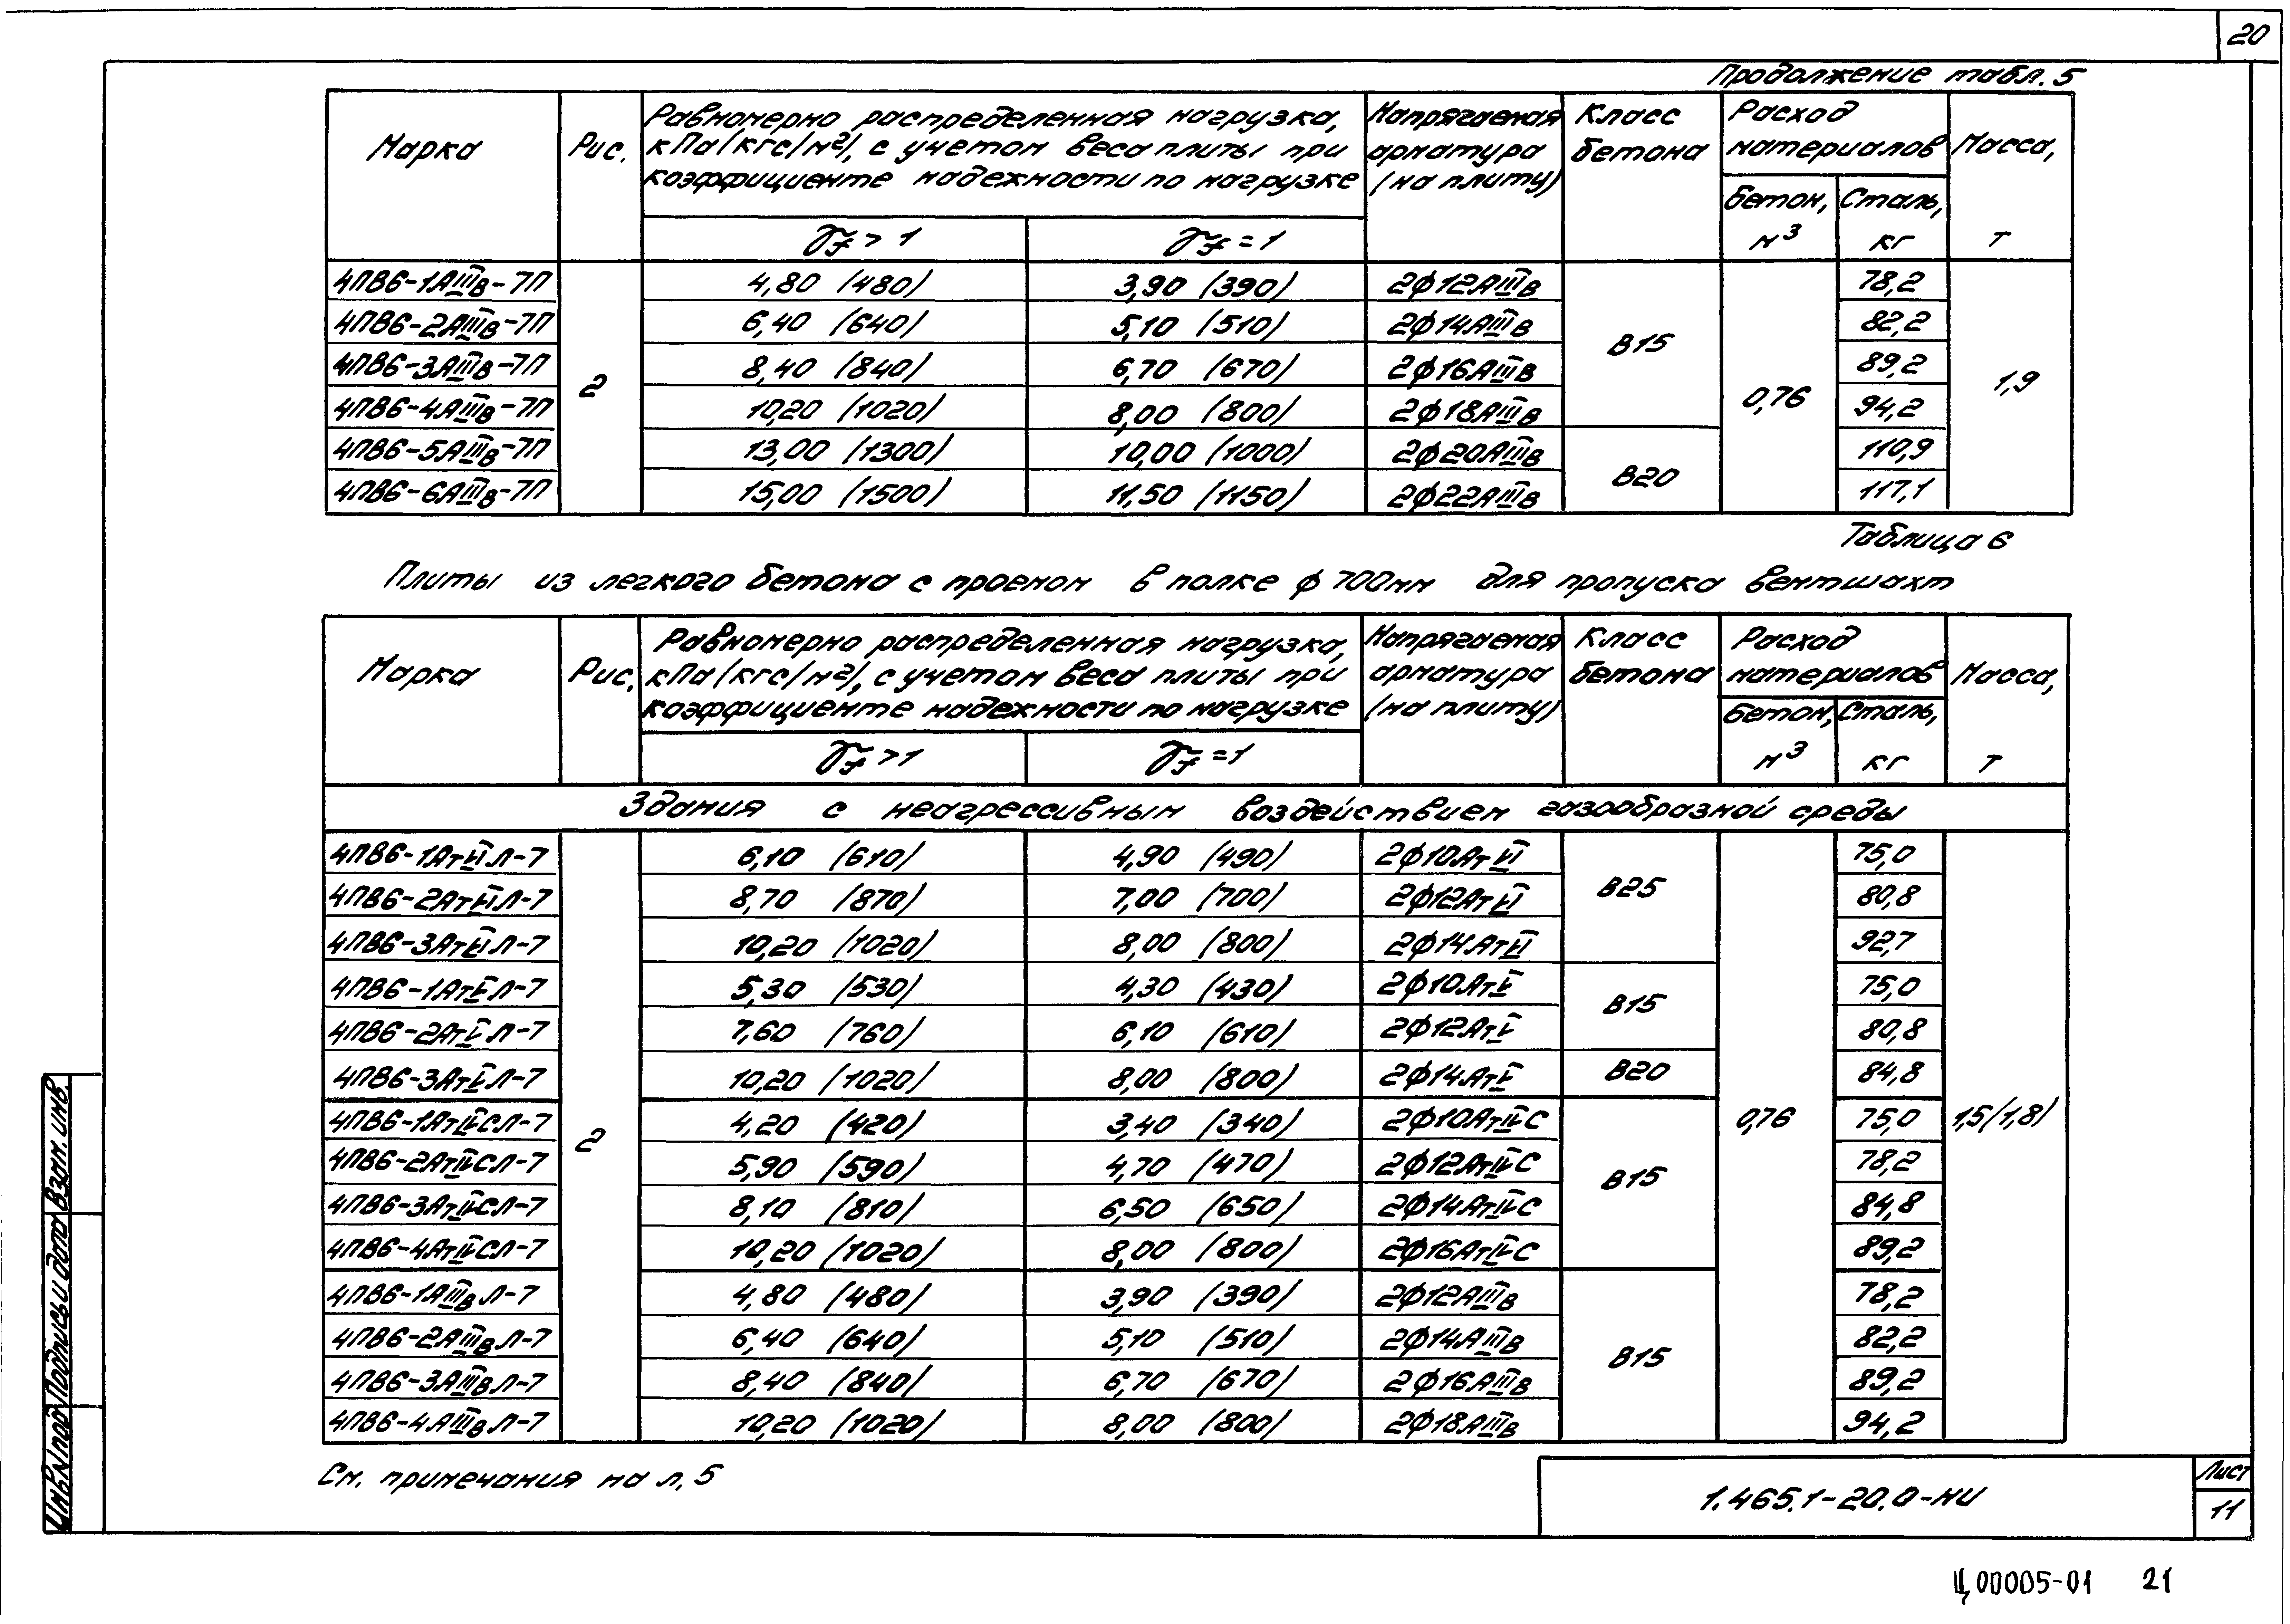 20
Продолжение табл. 5
Марка | Рис. | Равномерно распределенная нагрузка, кПа (кгс/м²), с учетом веса плиты при коэффициенте надежности по нагрузке | Напрягаемая арматура (на плиту) | Класс бетона | Расход материалов | Масса, т
γf > 1 | γf = 1 | Бетон, м³ | Сталь, кг
4ПВ6-1АIIIв-7П | 2 | 4,80 (480) | 3,90 (390) | 2ϕ12АIIIв | В15 | 0,76 | 78,2 | 1,9
4ПВ6-2АIIIв-7П | 6,40 (640) | 5,10 (510) | 2ϕ14АIIIв | 82,2
4ПВ6-3АIIIв-7П | 8,40 (840) | 6,70 (670) | 2ϕ16АIIIв | 89,2
4ПВ6-4АIIIв-7П | 10,20 (1020) | 8,00 (800) | 2ϕ18АIIIв | 94,2
4ПВ6-5АIIIв-7П | 13,00 (1300) | 10,00 (1000) | 2ϕ20АIIIв | В20 | 110,9
4ПВ6-6АIIIв-7П | 15,00 (1500) | 11,50 (1150) | 2ϕ22АIIIв | 117,1
Таблица 6
Плиты из легкого бетона с проемом в полке ϕ 700мм для пропуска вентшахт
Марка | Рис. | Равномерно распределенная нагрузка, кПа (кгс/м²), с учетом веса плиты при коэффициенте надежности по нагрузке | Напрягаемая арматура (на плиту) | Класс бетона | Расход материалов | Масса, т
γf > 1 | γf = 1 | Бетон, м³ | Сталь, кг
Здания с неагрессивным воздействием газообразной среды
4ПВ6-1АтVIЛ-7 | 2 | 6,10 (610) | 4,90 (490) | 2ϕ10АтVI | В25 | 0,76 | 75,0 | 1,5(1,8)
4ПВ6-2АтVIЛ-7 | 8,70 (870) | 7,00 (700) | 2ϕ12АтVI | 80,8
4ПВ6-3АтVIЛ-7 | 10,20 (1020) | 8,00 (800) | 2ϕ14АтVI | 92,7
4ПВ6-1АтVЛ-7 | 5,30 (530) | 4,30 (430) | 2ϕ10АтV | В15 | 75,0
4ПВ6-2АтVЛ-7 | 7,60 (760) | 6,10 (610) | 2ϕ12АтV | 80,8
4ПВ6-3АтVЛ-7 | 10,20 (1020) | 8,00 (800) | 2ϕ14АтV | В20 | 84,8
4ПВ6-1АтIVСЛ-7 | 4,20 (420) | 3,40 (340) | 2ϕ10АтIVС | В15 | 75,0
4ПВ6-2АтIVСЛ-7 | 5,90 (590) | 4,70 (470) | 2ϕ12АтIVС | 78,2
4ПВ6-3АтIVСЛ-7 | 8,10 (810) | 6,50 (650) | 2ϕ14АтIVС | 84,8
4ПВ6-4АтIVСЛ-7 | 10,20 (1020) | 8,00 (800) | 2ϕ16АтIVС | 89,2
4ПВ6-1АIIIвЛ-7 | 4,80 (480) | 3,90 (390) | 2ϕ12АIIIв | В15 | 78,2
4ПВ6-2АIIIвЛ-7 | 6,40 (640) | 5,10 (510) | 2ϕ14АIIIв | 82,2
4ПВ6-3АIIIвЛ-7 | 8,40 (840) | 6,70 (670) | 2ϕ16АIIIв | 89,2
4ПВ6-4АIIIвЛ-7 | 10,20 (1020) | 8,00 (800) | 2ϕ18АIIIв | 94,2
См. примечания на л. 5
1.465.1-20.0-НИ
Лист
11
Инв№под Подпись и дата Взам. инв.
Ц00005-01 21